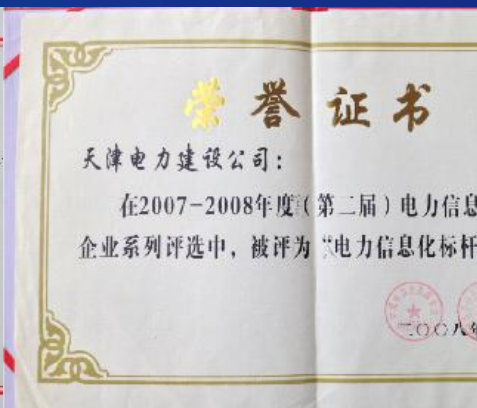 荣誉证书
天津电力建设公司：
在2007-2008年度（第二届）电力信息
企业系列评选中，被评为“电力信息化标杆
二〇〇八年